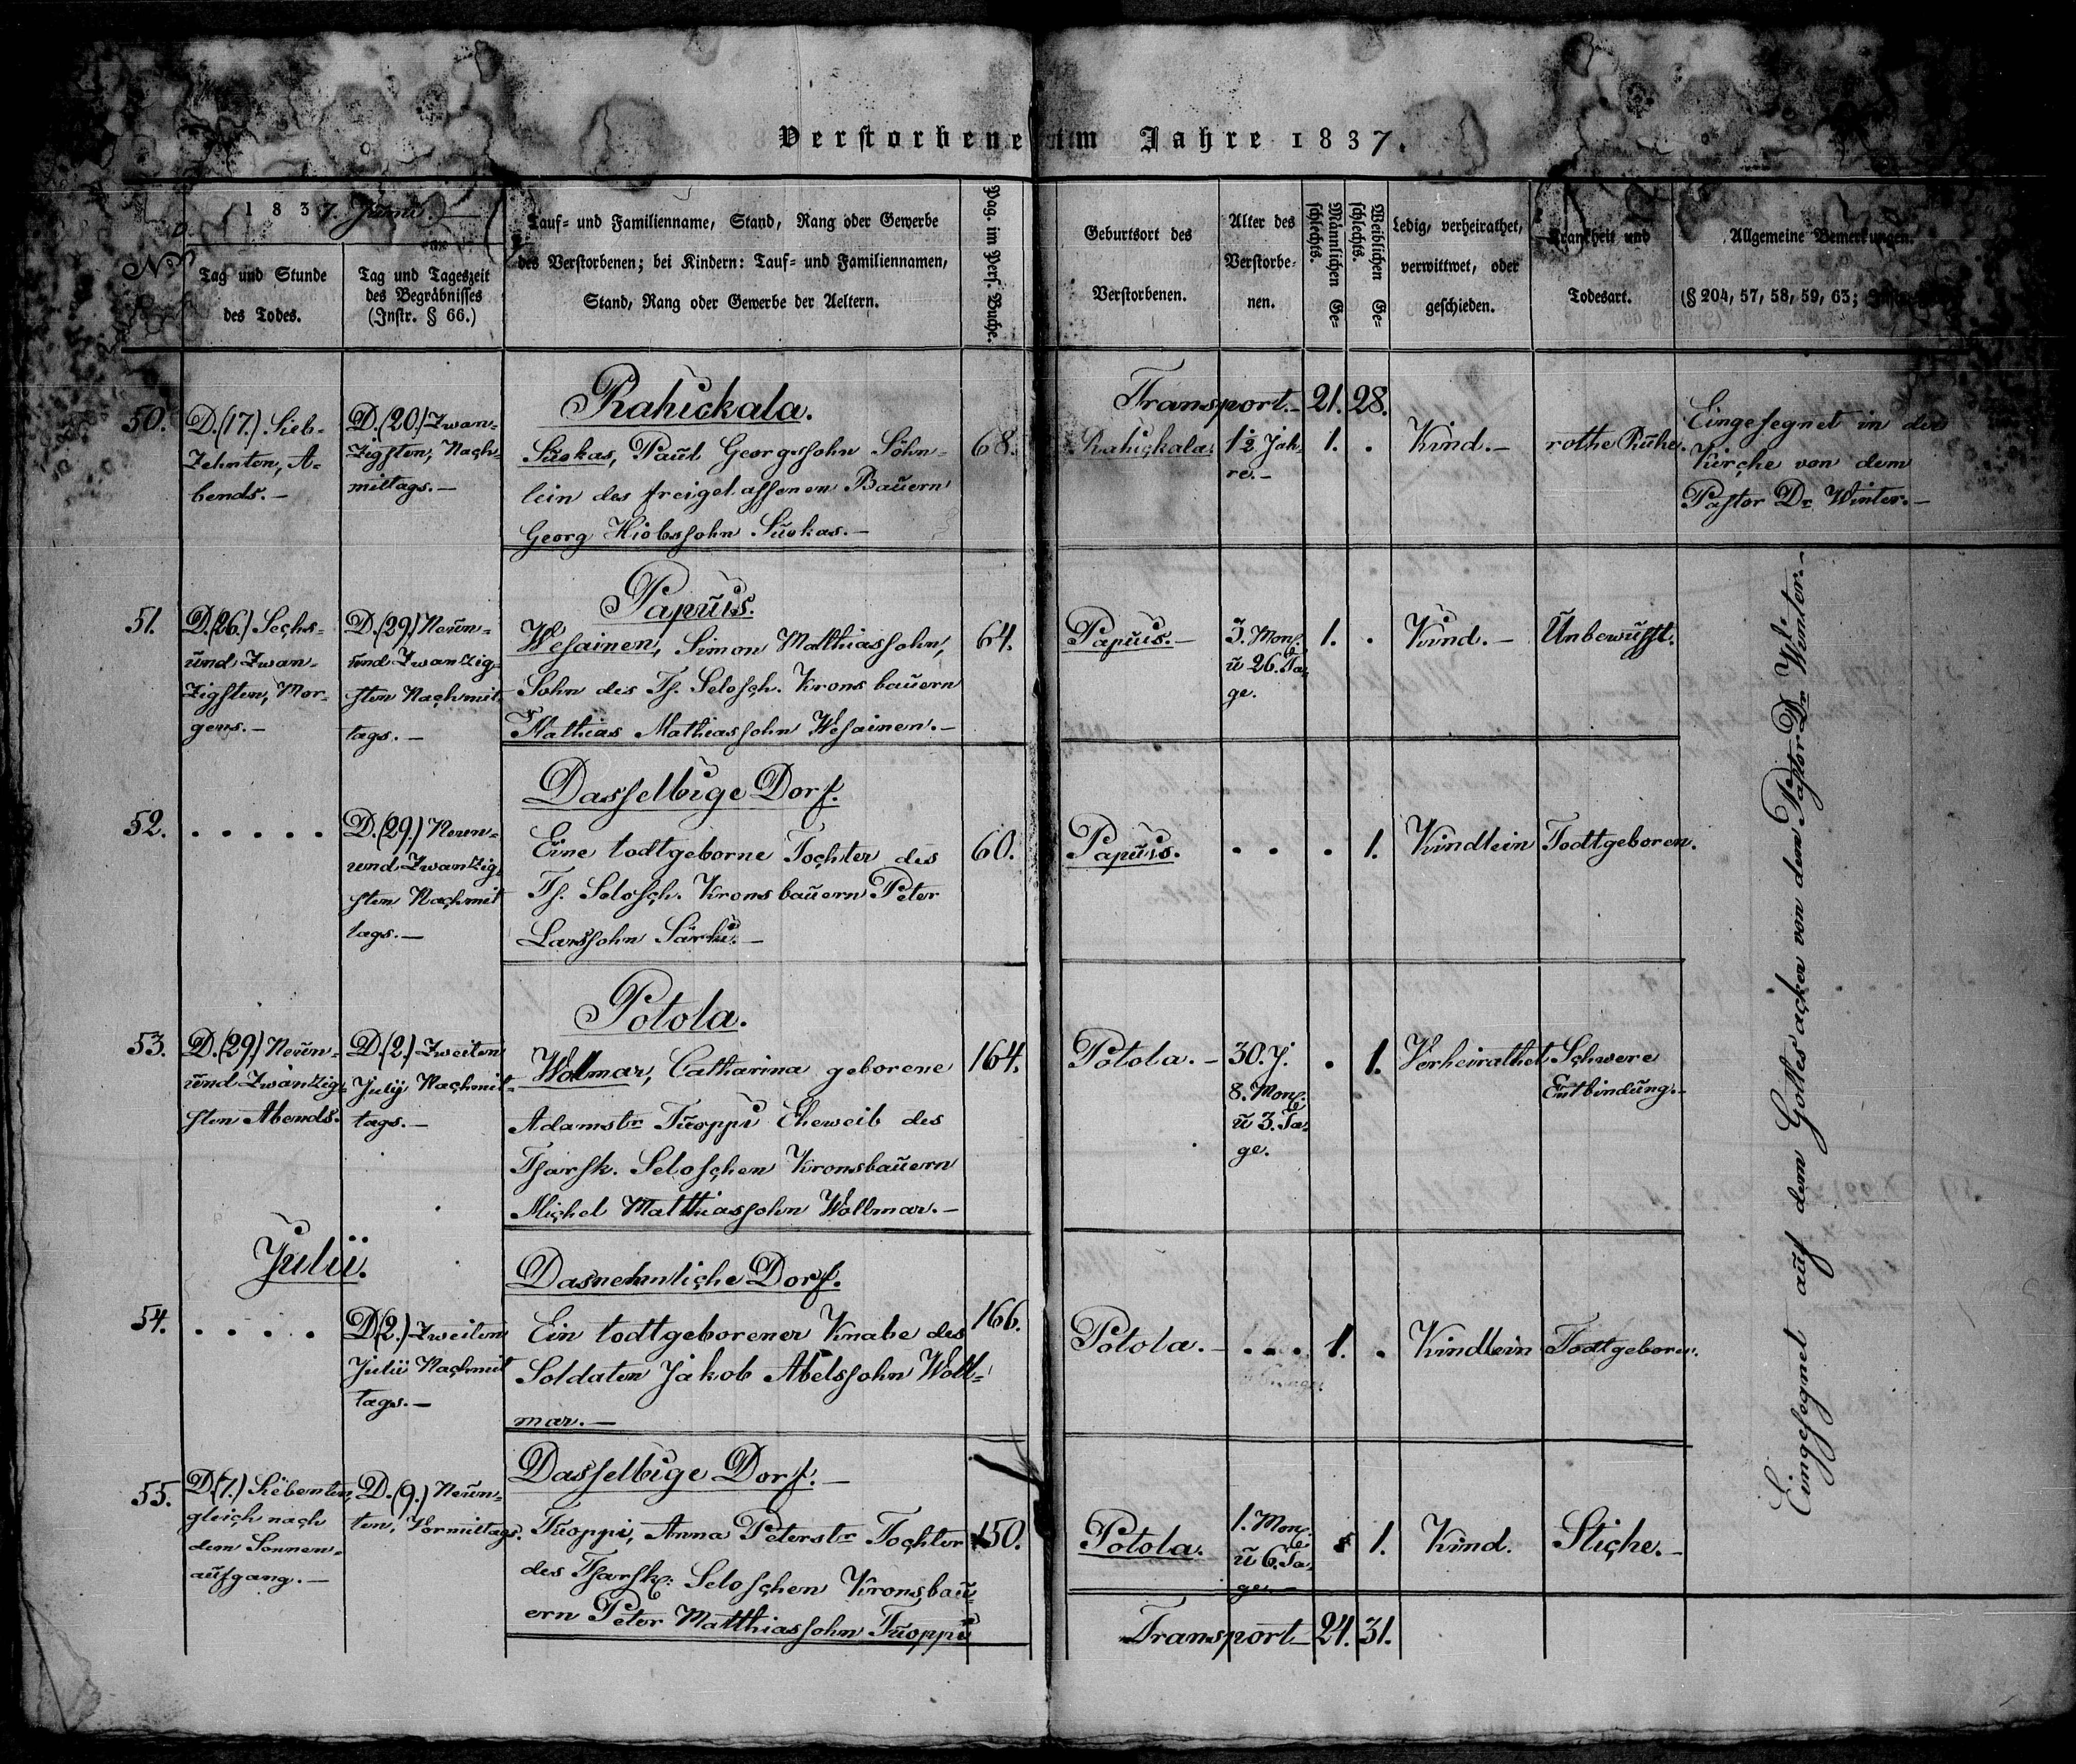 Verstorbene im Jahre 1837.
No.
1837. Junii.
Tag und Stunde
des Todes.
Tag und Tageszeit
des Begräbnisses
(Instr. § 66.)
Tauf- und Familienname, Stand, Rang oder Gewerbe
des Verstorbenen; bei Kindern: Tauf- und Familiennamen,
Stand, Rang oder Gewerbe der Aeltern.
Pag. im Pers. Buche.
Geburtsort des
Verstorbenen.
Alter des
Verstorbe-
nen.
Männlichen Ge-
schlechts.
Weiblichen Ge-
schlechts.
Ledig, verheirathet,
verwittwet, oder
geschieden.
Krankheit und
Todesart.
Allgemeine Bemerkungen.
(§ 204, 57, 58, 59, 63;
Transport.– 21. 28.
50.
D. (17.) Sieb-
zehnten, A-
bends.–
D. (20.) Zwan-
zigsten, Nach-
mittags.–
Rahickala.
Suokas, Paul Georgssohn Söhn-
lein des freigelassenen Bauern
Georg Hiobssohn Suokas.–
68.
Rahickala.
1½ Jah-
re.–
1. .
Kind.–
rothe Ruhr.
Eingesegnet in der
Kirche von dem
Pastor Dr. Winter.–
51.
D. (26.) Sechs-
und Zwan-
zigsten, Mor-
gens.–
D. (29.) Neun-
und Zwanzig-
sten Nachmit-
tags.–
Papus.
Wesainen, Simon Matthiassohn,
Sohn des Ts. Selosch. Kronsbauern
Mathias Mathiassohn Wesainen.–
64.
Papus.–
3. Mon.
u 26. Ta-
ge.
1. .
Kind.–
Unbewusst.
52.
. . . . .
D. (29.) Neun-
und Zwanzig-
sten Nachmit
tags.–
Dasselbige Dorf.
Eine todtgeborne Tochter des
Ts. Selosch. Kronsbauern Peter
Larssohn Särki.–
60.
Papus.
. . . . 1.
Kindlein
Todtgeboren.
53.
D. (29.) Neun-
und Zwanzig-
sten Abends.
D. (2.) Zweiten
Julij Nachmit-
tags.–
Potola.
Wollmar, Catharina geborene
Adamstr. Tuoppi Eheweib des
Tsarsk. Seloschen Kronsbauern
Michel Matthiassohn Wollmar.–
164.
Potola.–
30. J.
8. Mon.
u 3. Ta-
ge.
. 1.
Verheirathet
Schwere
Entbindung.–
Julii.
54.
. . . .
D. (2.) Zweiten
Julii Nachmit
tags.–
Dasnehmliche Dorf.
Ein todtgeborener Knabe des
Soldaten Jakob Abelssohn Woll-
mar.–
166.
Potola.–
. . . 1. .
Kindlein
Todtgeboren.
55.
D. (7.) Siebenten,
gleich nach
dem Sonnen-
aufgang.–
D. (9.) Neun-
ten, Vormittags.
Dasselbige Dorf.–
Tuoppi, Anna Peterstr. Tochter
des Tsarsk. Seloschen Kronsbau-
ern Peter Matthiassohn Tuoppi
150.
Potola.
1. Mon.
u 6. Ta-
ge.–
1.
Kind.
Stiche.–
Eingesegnet auf dem Gottesacker von dem Pastor Dr. Winter.–
Transport– 24. 31.